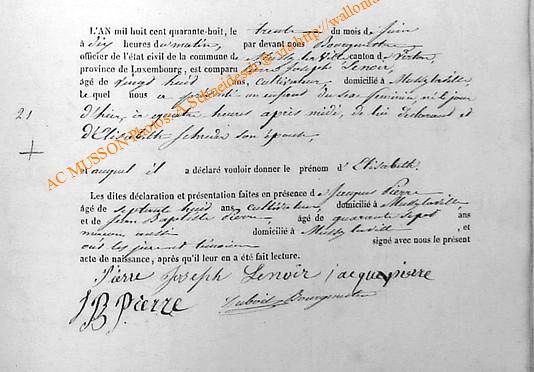 L'AN mil huit cent quarante-huit, le trente du mois de juin
à dix heures du matin, par devant nous Bourgmestre
officier de l'état civil de la commune de Mussy la ville canton de Virton
province de Luxembourg, est comparu Pierre Joseph Lenoir,
âgé de vingt huit ans, cultivateur domicilié à Mussylaville
Lequel nous a présenté un enfant du sexe féminin, né le jour
21
d'hier, à quatre heures après midi, de lui déclarant et
d'Elisabeth son épouse,
+
et auquel il a déclaré vouloir donner le prénom d'Elisabeth.
Les dites déclaration et présentation faites en présence de Jacques Pierre
âgé de septante huit ans, cultivateur, domicilié à Mussylaville
et de Jean Baptiste Pierre âgé de quarante sept ans
domicilié à Mussylaville, et
ont les témoins signé avec nous le présent
acte de naissance, après qu'il leur en a été fait lecture.
Pierre Joseph Lenoir jacque pierre
JB Pierre
Dubois Bourgmestre
AC MUSSON Photos: A Schneidesch @ via http://wallonia